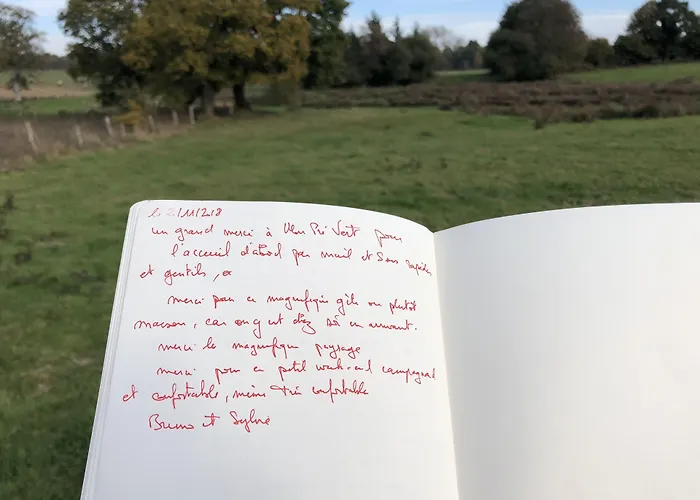 le 2/11/218
un grand merci à Pré Vert pour
l'accueil d'abord par mail et sms rapides
et gentils,
merci pour ce magnifique gîte ou plutôt
maison, car on y est chez soi en arrivant.
merci le magnifique paysage
merci pour ce petit week-end campagnard
et confortable, même très confortable
Bruno et Sylvie